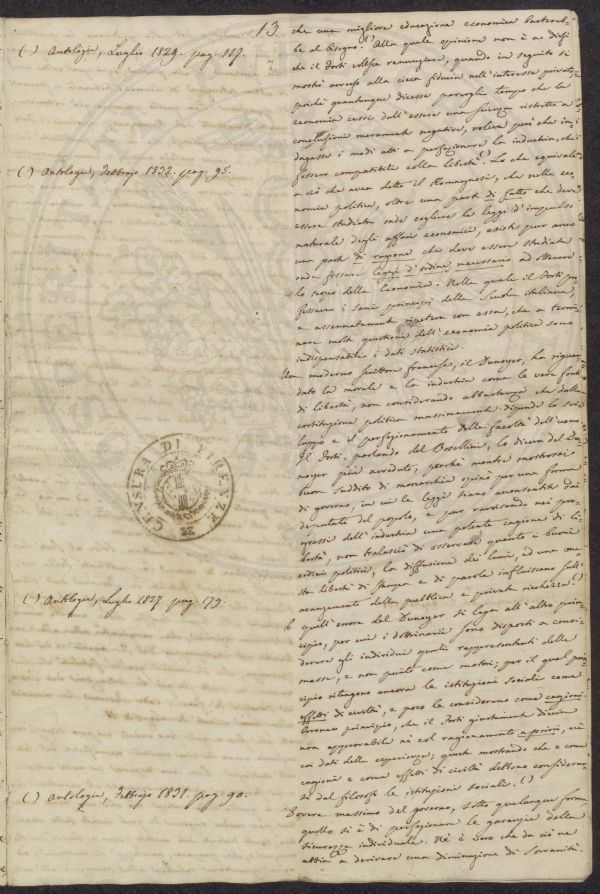 13
() Antologia, Luglio 1829. pag. 117.
2
() Antologia, Febbrajo 1832. pag. 95.
CENSURA DI FIRENZE
() Antologia, Luglio 1827. pag. 179.
() Antologia, Febbrajo 1831. pag. 90.
che una migliore educazione economica basterebbe
be al bisogno. () Alla quale opinione non è a dirsi
che il Forti volesse renunziare, quando in seguito si
mostrò avverso alla cieca fiducia nell'interesse privato,
poiché quantunque dicesse parergli tempo che la
economia cessi dall'essere una scienza ristretta a
conclusioni meramente negative, voleva però che in-
dagasse i modi atti a perfezionare la industria, che
fossero compatibili colla libertà. () Lo che equivale
a ciò che avea detto il Romagnosi, che nella eco-
nomia politica, oltre una parte di fatto che deve
essere studiata onde cogliere le leggi d'impulso
naturale degli affari economici, esiste pur anco
una parte di ragione che deve essere studiata
onde fissare leggi d'ordine necessario ad ottenere
lo scopo della Economia. Nella quale il Forti pro-
fessava i sani principj della Scuola italiana,
e assennatamente ripeteva con essa, che a termi-
nare molte questioni dell'economia politica sono
indispensabili i dati statistici.
Un moderno scrittore francese, il Dunoyer, ha riguar-
dato la morale e la industria come le vere fonti
di libertà, non considerando abbastanza che dalla
costituzione politica massimamente dipende lo svi-
luppo e il perfezionamento delle facoltà dell'uomo
Il Forti, parlando del Bosellini, lo diceva del Du-
noyer più avveduto, perché mentre mostrossi
buon suddito di monarchia opinò per una forma
di governo, in cui le leggi siano acconsentite dai
deputati del popolo, e pur ravvisando nei pro-
gressi dell'industria una potente cagione di li-
bertà, non tralasciò di osservare quanto i buoni
ordini politici, la diffusione dei lumi, ed una one-
sta libertà di stampa e di parola influissero sull'
avanzamento della pubblica e privata ricchezza. ()
E quell'errore del Dunoyer si lega all'altro prin-
cipio, per cui i dottrinarii sono disposti a consi-
derare gli individui quali rappresentanti delle
masse, e non punto come motori; per il qual prin-
cipio ritengono ancora le istituzioni sociali come
effetti di civiltà, e poco le considerano come cagioni.
Erroneo principio, che il Forti giustamente diceva
non approvabile né col ragionamento a priori, né
coi dati della esperienza; giusto mostrando che e come
cagioni e come effetti di civiltà debbono considerar-
si dal filosofo le istituzioni sociali. ()
Dovere massimo del governo, sotto qualunque forma
quello si è di perfezionare le garanzie della
sicurezza individuale. Né è vero che da ciò ne
abbia a derivare una diminuzione di sovranità.